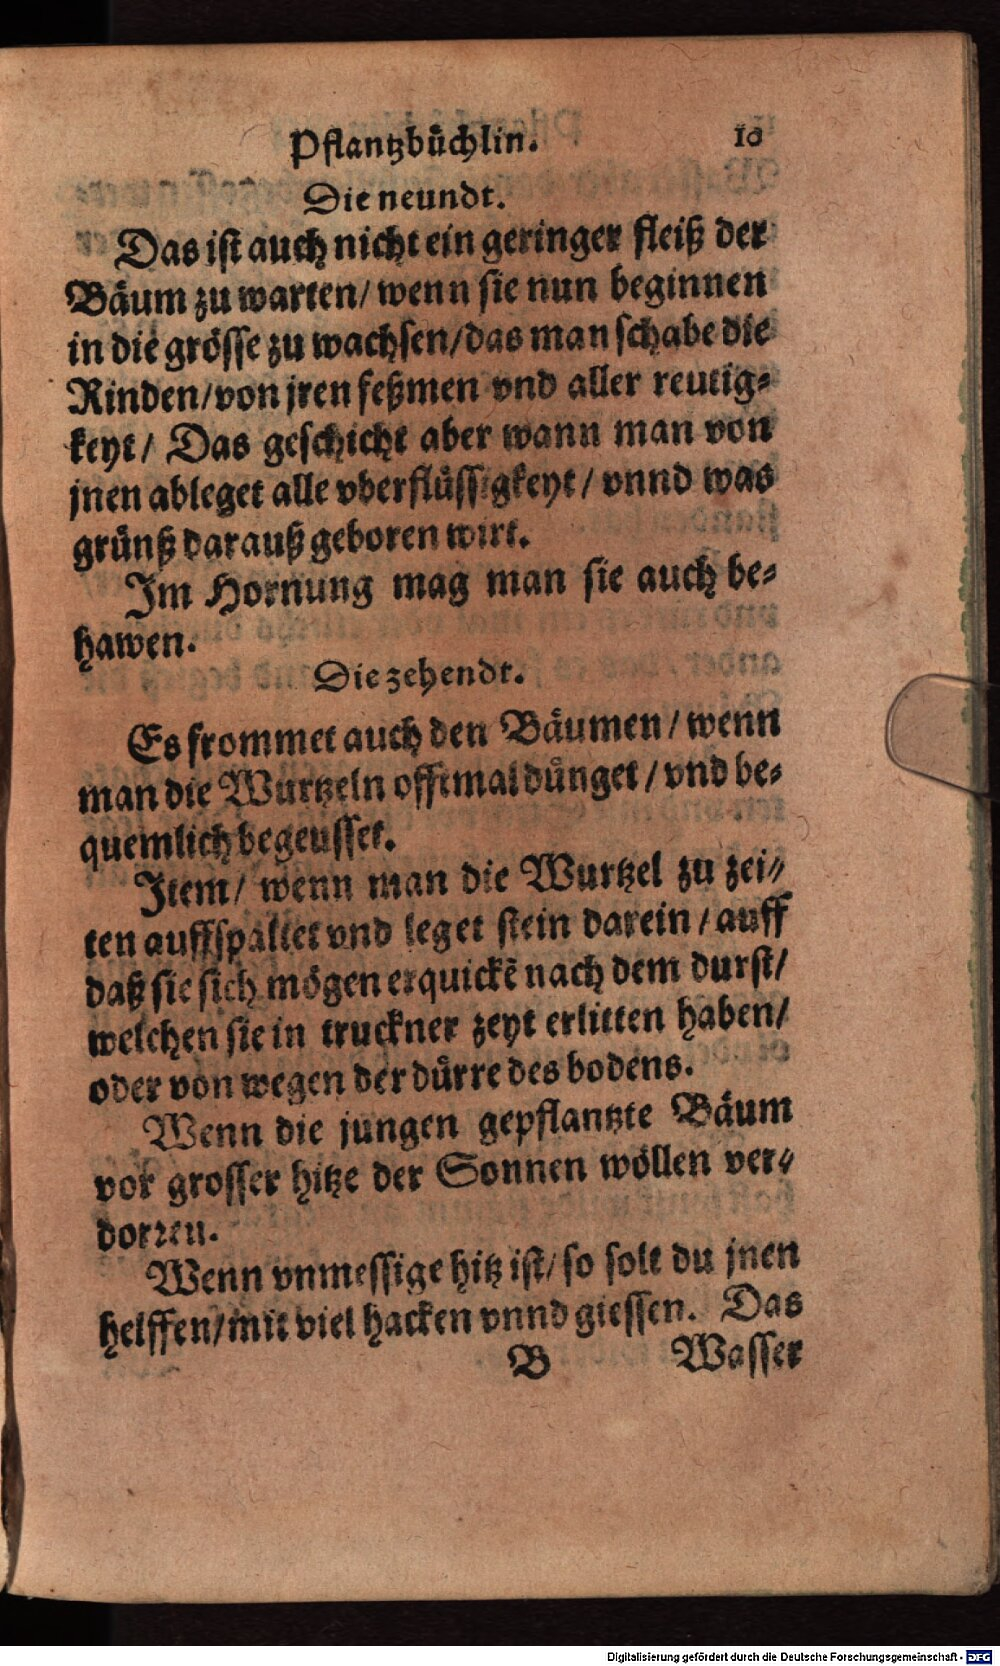 Pflantzbüchlin. 10
Die neundt.
Das ist auch nicht ein geringer fleiß der
Bäum zu warten/ wenn sie nun beginnen
in die grösse zu wachsen/das man schabe die
Rinden/von jren feßmen vnd aller reutig-
keyt/ Das geschicht aber wann man von
jnen ableget alle vberflüssigkeyt/ vnnd was
grünß darauß geboren wirt.
Im Hornung mag man sie auch be-
hawen.
Die zehendt.
Es frommet auch den Bäumen/ wenn
man die Wurtzeln offtmal dünget/ vnd be-
quemlich begeusset.
Item/ wenn man die Wurtzel zu zei-
ten auffspaltet vnd leget stein darein/ auff
daß sie sich mögen erquickẽ nach dem durst/
welchen sie in truckner zeyt erlitten haben/
oder von wegen der dürre des bodens.
Wenn die jungen gepflantzte Bäum
vor grosser hitze der Sonnen wöllen ver-
dorren.
Wenn vnmessige hitz ist/ so solt du jnen
helffen/mit viel hacken vnnd giessen. Das
B Wasser
Digitalisierung gefördert durch die Deutsche Forschungsgemeinschaft - DFG